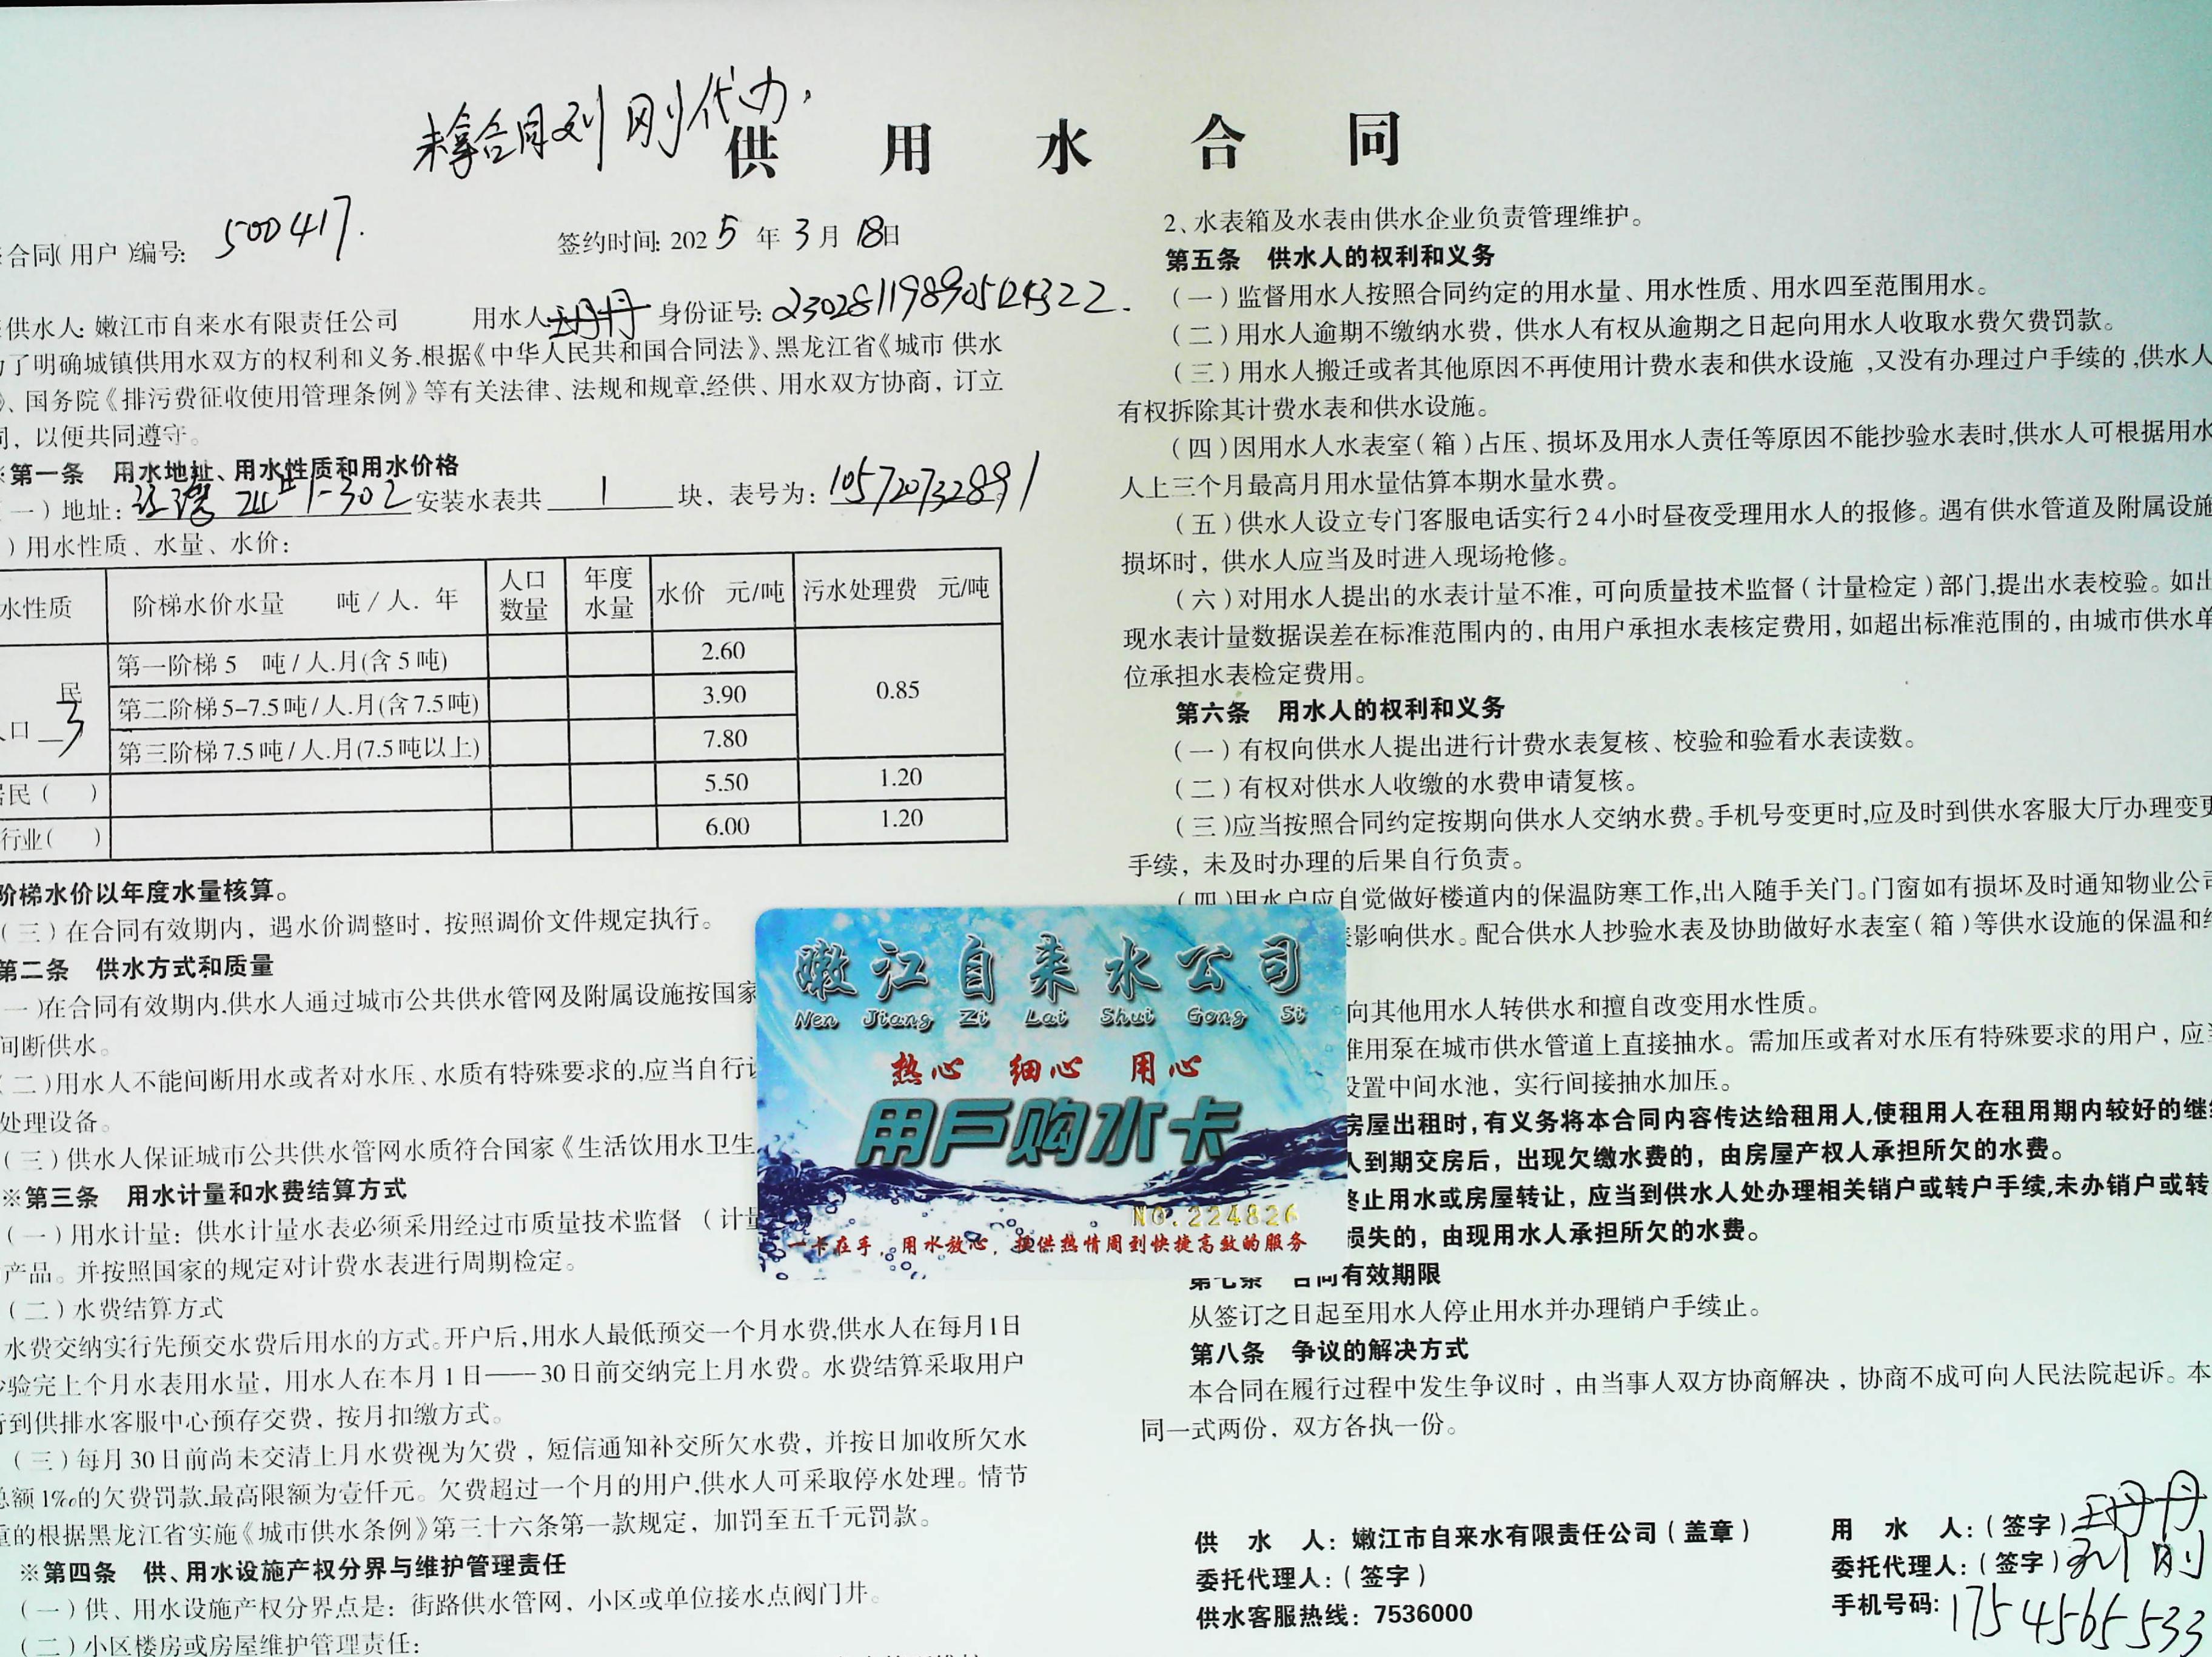 未拿合同刘刚代办,
供 用 水 合 同
合同(用户)编号: 500417.
签约时间: 2025 年 3 月 18日
供水人: 嫩江市自来水有限责任公司 用水人: 丹丹 身份证号:
了明确城镇供用水双方的权利和义务,根据《中华人民共和国合同法》、黑龙江省《城市 供水
》、国务院《排污费征收使用管理条例》等有关法律、法规和规章,经供、用水双方协商, 订立
同, 以便共同遵守。
※第一条 用水地址、用水性质和用水价格
(一)地址: 1-302 安装水表共 1 块, 表号为: 105720732891
)用水性质、水量、水价:
水性质 阶梯水价水量 吨/人. 年 人口数量 年度水量 水价 元/吨 污水处理费 元/吨
民
口 3
第一阶梯 5 吨/人.月(含 5 吨) 2.60 0.85
第二阶梯 5-7.5 吨/人.月(含 7.5 吨) 3.90
第三阶梯 7.5 吨/人.月(7.5 吨以上) 7.80
居民( ) 5.50 1.20
行业( ) 6.00 1.20
阶梯水价以年度水量核算。
(三)在合同有效期内, 遇水价调整时, 按照调价文件规定执行。
第二条 供水方式和质量
一)在合同有效期内,供水人通过城市公共供水管网及附属设施按国家
间断供水。
(二)用水人不能间断用水或者对水压、水质有特殊要求的,应当自行设
处理设备。
(三)供水人保证城市公共供水管网水质符合国家《生活饮用水卫生
※第三条 用水计量和水费结算方式
(一)用水计量: 供水计量水表必须采用经过市质量技术监督 (计量
产品。并按照国家的规定对计费水表进行周期检定。
(二)水费结算方式
水费交纳实行先预交水费后用水的方式。开户后,用水人最低预交一个月水费,供水人在每月1日
抄验完上个月水表用水量, 用水人在本月1日——30日前交纳完上月水费。水费结算采取用户
行到供排水客服中心预存交费, 按月扣缴方式。
(三)每月30日前尚未交清上月水费视为欠费, 短信通知补交所欠水费, 并按日加收所欠水
总额1‰的欠费罚款,最高限额为壹仟元。欠费超过一个月的用户,供水人可采取停水处理。情节
重的根据黑龙江省实施《城市供水条例》第三十六条第一款规定, 加罚至五千元罚款。
※第四条 供、用水设施产权分界与维护管理责任
(一)供、用水设施产权分界点是: 街路供水管网, 小区或单位接水点阀门井。
(二)小区楼房或房屋维护管理责任:
2、水表箱及水表由供水企业负责管理维护。
第五条 供水人的权利和义务
(一)监督用水人按照合同约定的用水量、用水性质、用水四至范围用水。
(二)用水人逾期不缴纳水费, 供水人有权从逾期之日起向用水人收取水费欠费罚款。
(三)用水人搬迁或者其他原因不再使用计费水表和供水设施 ,又没有办理过户手续的,供水人
有权拆除其计费水表和供水设施。
(四)因用水人水表室(箱)占压、损坏及用水人责任等原因不能抄验水表时,供水人可根据用水
人上三个月最高月用水量估算本期水量水费。
(五)供水人设立专门客服电话实行24小时昼夜受理用水人的报修。遇有供水管道及附属设施
损坏时, 供水人应当及时进入现场抢修。
(六)对用水人提出的水表计量不准, 可向质量技术监督(计量检定)部门,提出水表校验。如出
现水表计量数据误差在标准范围内的, 由用户承担水表核定费用, 如超出标准范围的, 由城市供水单
位承担水表检定费用。
第六条 用水人的权利和义务
(一)有权向供水人提出进行计费水表复核、校验和验看水表读数。
(二)有权对供水人收缴的水费申请复核。
(三)应当按照合同约定按期向供水人交纳水费。手机号变更时,应及时到供水客服大厅办理变更
手续, 未及时办理的后果自行负责。
(四)用水户应自觉做好楼道内的保温防寒工作,出入随手关门。门窗如有损坏及时通知物业公司
影响供水。配合供水人抄验水表及协助做好水表室(箱)等供水设施的保温和
向其他用水人转供水和擅自改变用水性质。
准用泵在城市供水管道上直接抽水。需加压或者对水压有特殊要求的用户, 应当
设置中间水池, 实行间接抽水加压。
房屋出租时, 有义务将本合同内容传达给租用人,使租用人在租用期内较好的继
人到期交房后, 出现欠缴水费的, 由房屋产权人承担所欠的水费。
终止用水或房屋转让, 应当到供水人处办理相关销户或转户手续,未办销户或转
损失的, 由现用水人承担所欠的水费。
第七条 合同有效期限
从签订之日起至用水人停止用水并办理销户手续止。
第八条 争议的解决方式
本合同在履行过程中发生争议时, 由当事人双方协商解决, 协商不成可向人民法院起诉。本
同一式两份, 双方各执一份。
供 水 人: 嫩江市自来水有限责任公司(盖章)
委托代理人:(签字)
供水客服热线: 7536000
用 水 人:(签字) 丹丹
委托代理人:(签字) 刘刚
手机号码: 1754565533
嫩江自来水公司
Nen Jiang Zi Lai Shui Gong Si
热心 细心 用心
用户购水卡
NO.224826
一卡在手, 用水放心, 提供热情周到快捷高效的服务